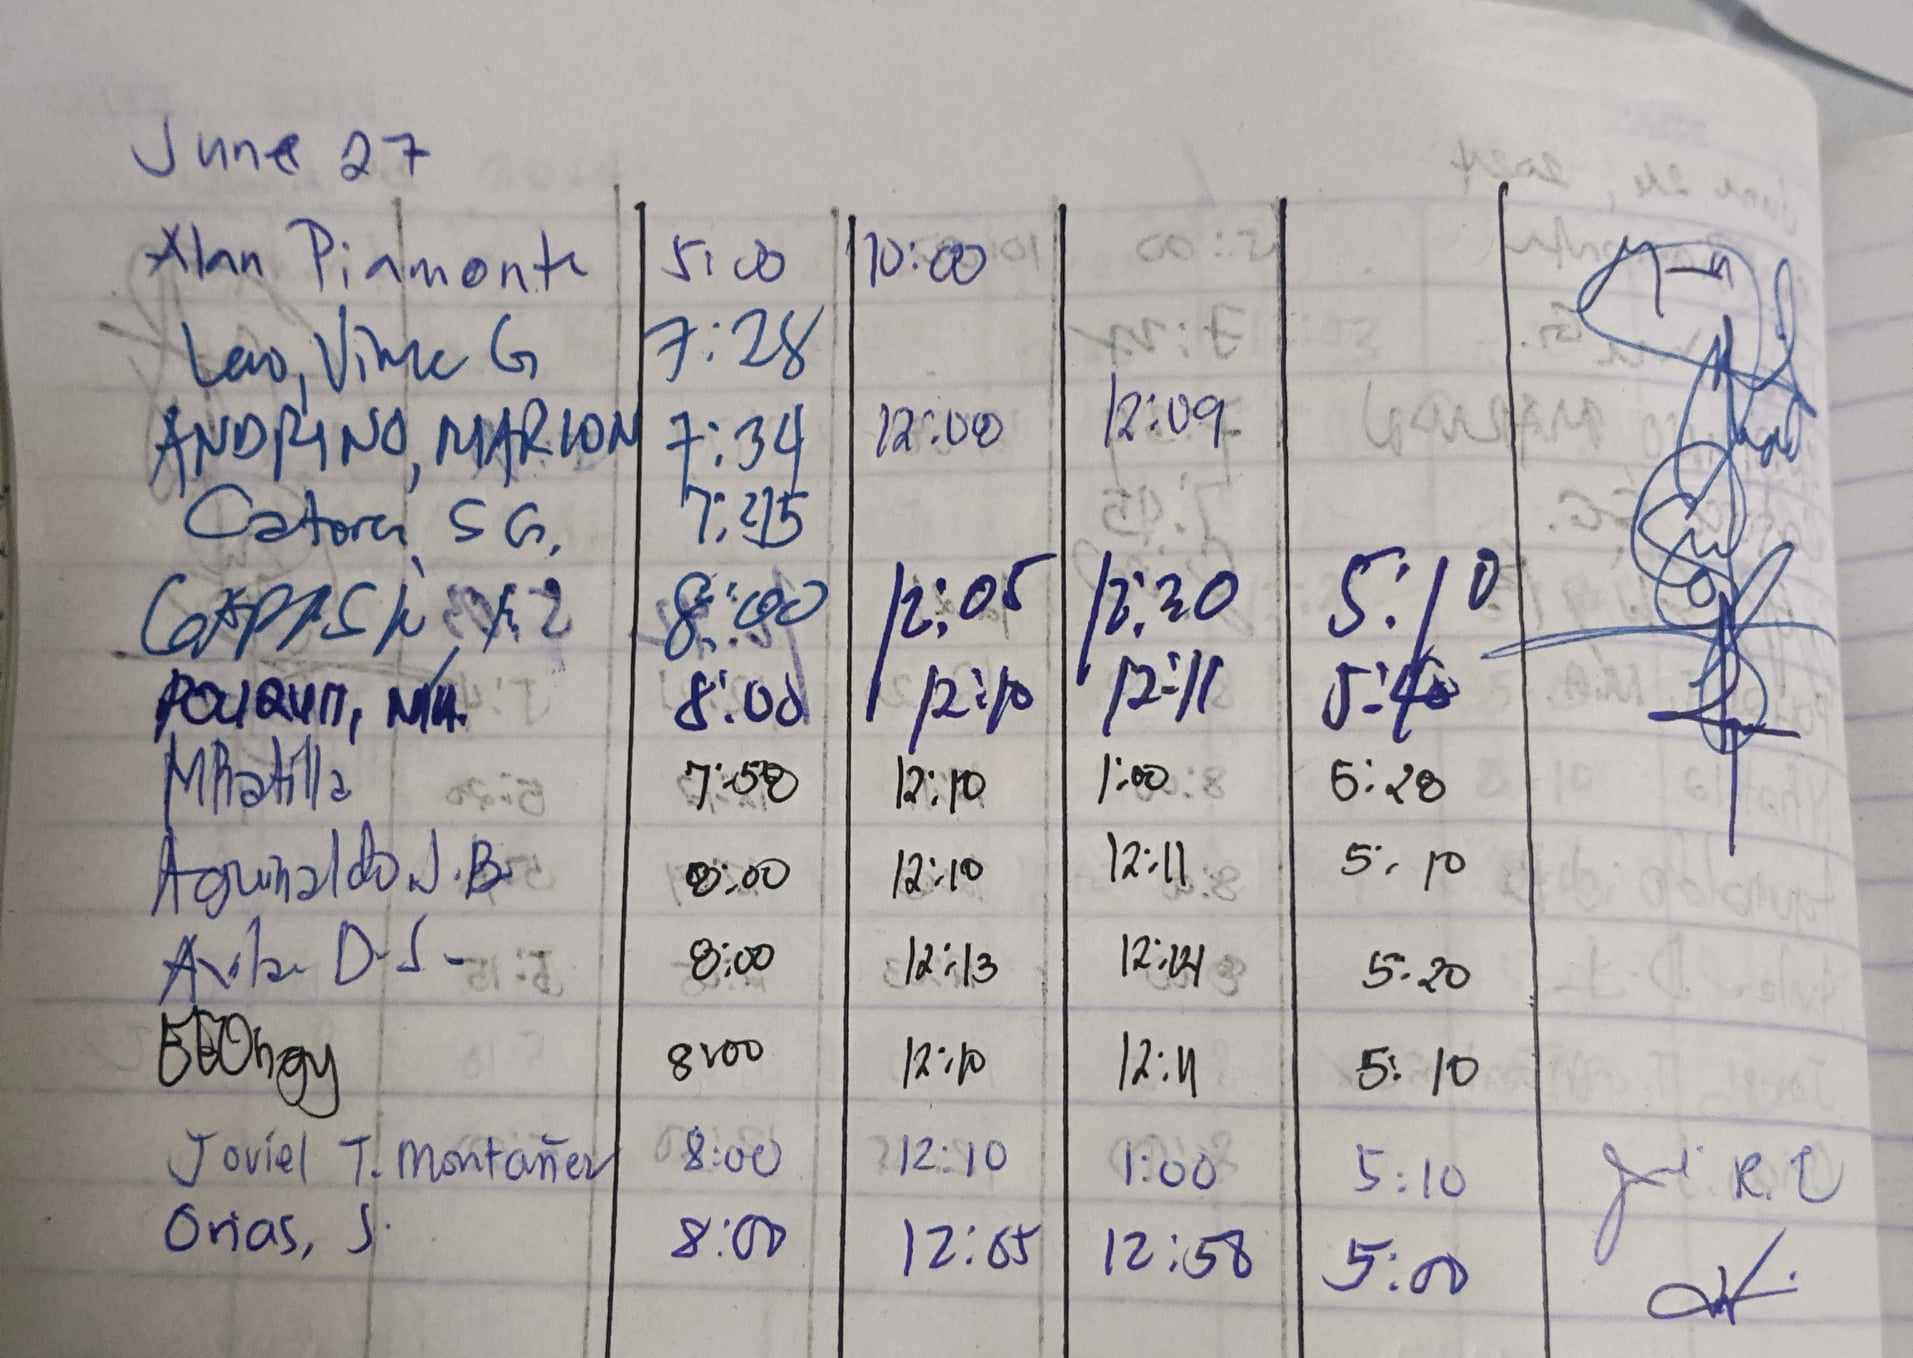 June 27
Alan Piamonte 5:00 10:00
Lao, Vince G 7:28
ANDRINO, MARION 7:34 12:00 12:09
Catora, S G.
8:00 12:05 12:20 5:10
8:00 12:10 12:11 5:40
MRatilla 7:58 12:10 1:00 5:20
Aguinaldo J.B. 8:00 12:10 12:11 5:10
Avila D.S- 8:00 12:13 12:14 5:20
8:00 12:10 12:11 5:10
Joviel T. Montañer 8:00 12:10 1:00 5:10
Orias, S. 8:00 12:05 12:58 5:00